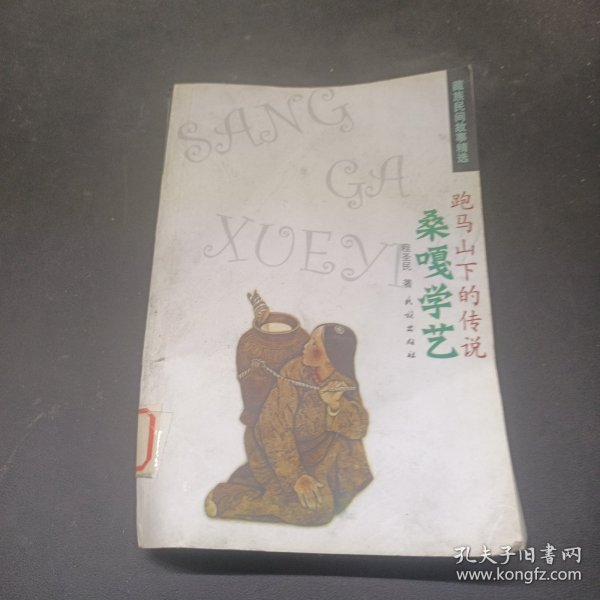 SANG
GA
XUEYI
藏族民间故事精选
跑马山下的传说
桑嘎学艺
程圣民 著
民族出版社
孔夫子旧书网
www.kongfz.com